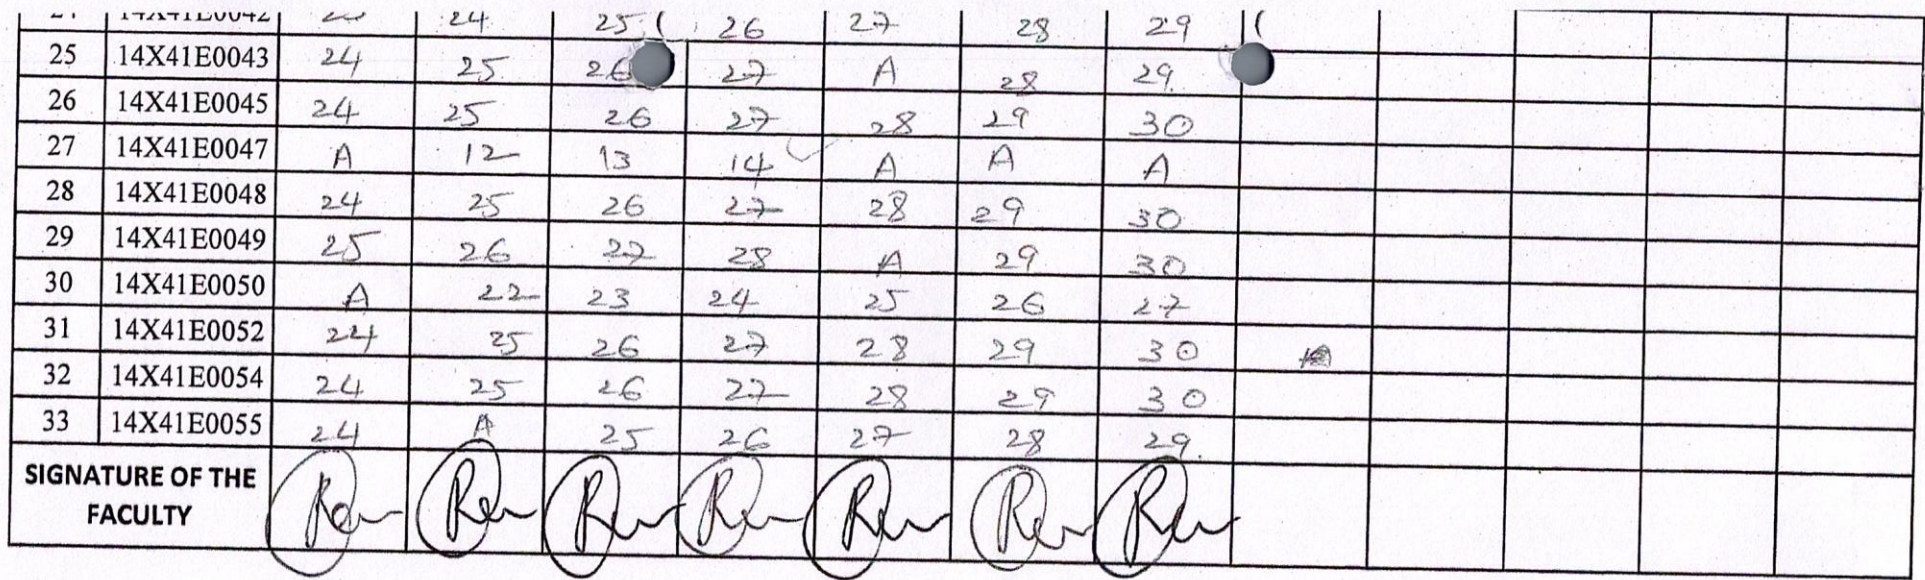 24 25 26 27 28 29
25 14X41E0043 24 25 26 27 A 28 29
26 14X41E0045 24 25 26 27 28 29 30
27 14X41E0047 A 12 13 14 A A A
28 14X41E0048 24 25 26 27 28 29 30
29 14X41E0049 25 26 27 28 A 29 30
30 14X41E0050 A 22 23 24 25 26 27
31 14X41E0052 24 25 26 27 28 29 30
32 14X41E0054 24 25 26 27 28 29 30
33 14X41E0055 24 A 25 26 27 28 29
SIGNATURE OF THE
FACULTY